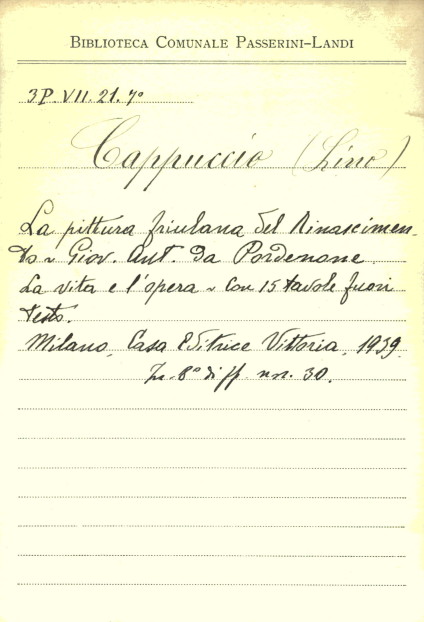 BIBLIOTECA COMUNALE PASSERINI-LANDI
3P. VII. 21. 7°
Cappuccio (Lino)
La pittura friulana del Rinascimen-
to e Giov. Ant. da Pordenone.
La vita e l'opera - Con 15 tavole fuori
testo.
Milano, Casa Editrice Vittoria, 1939.
In-8° di pp. 30.